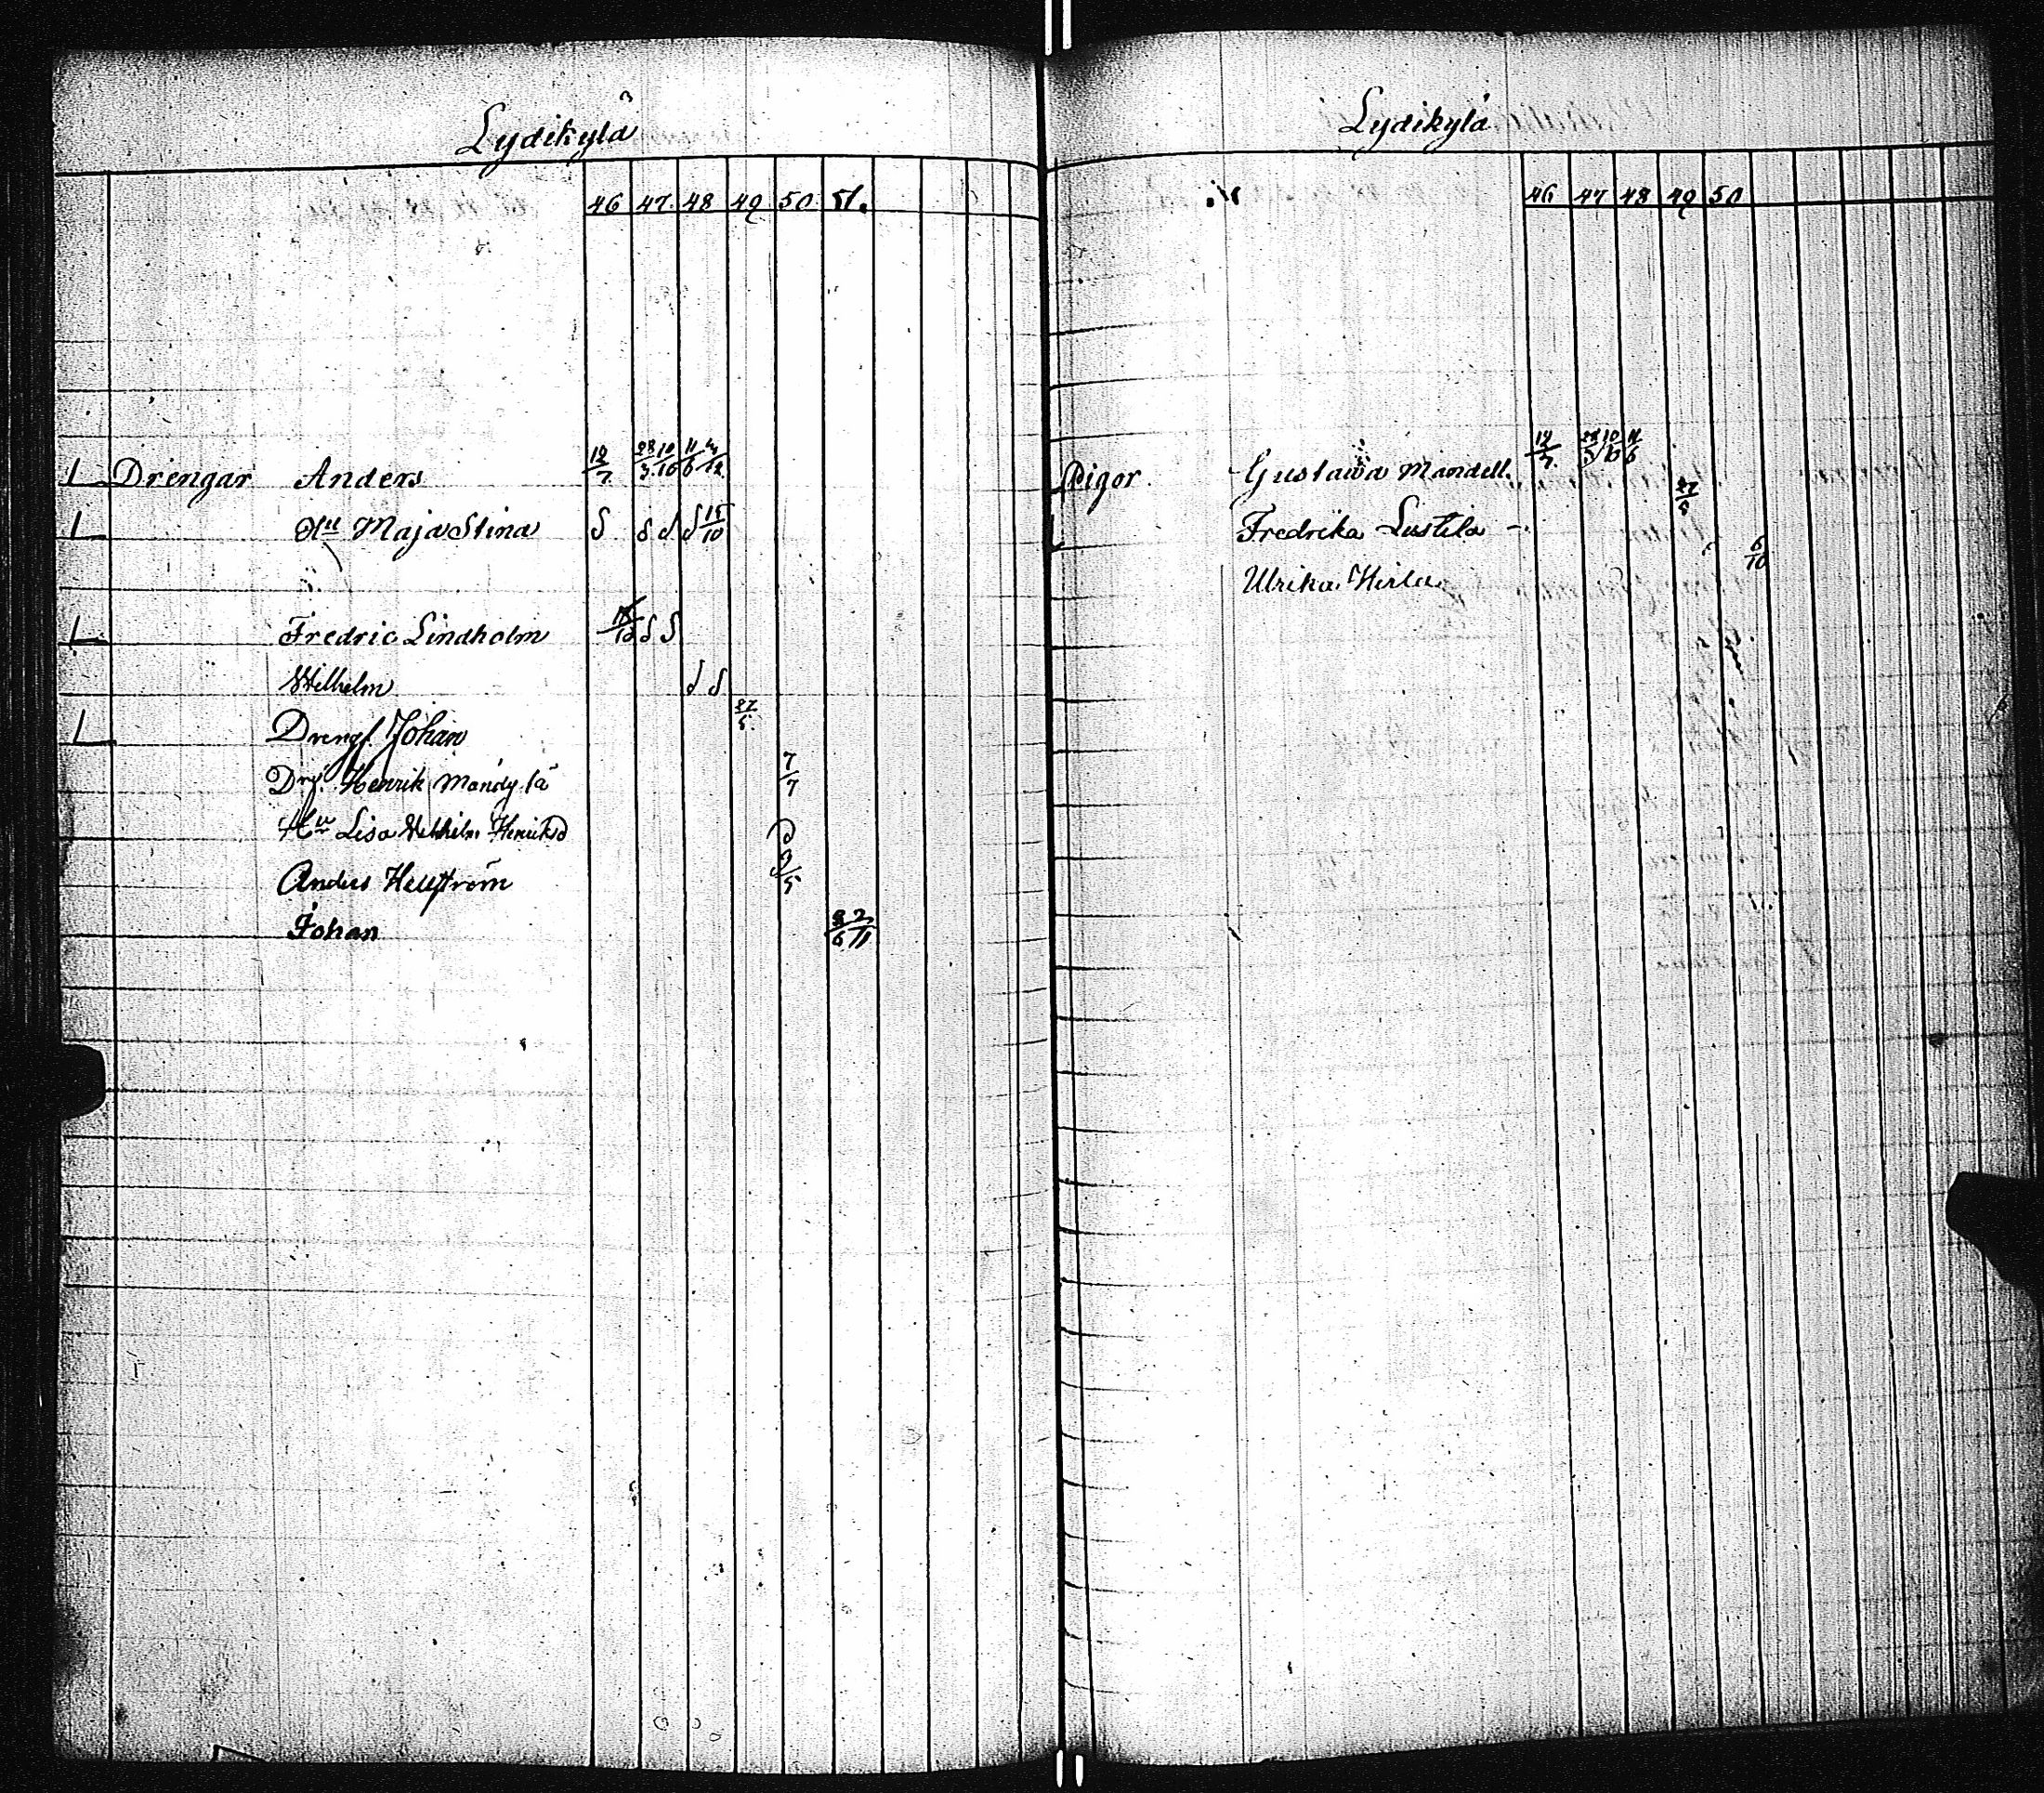 Lydikylä
46 47 48 49 50 51.
Drengar Anders 12/7 28/3 10/10 11/6 4/12
Hu Maja Stina d d d d 15/10
Fredric Lindholm d d
Wilhelm d d
Drengf. Johan 27/5
Drg. Henrik Mändylä 7/7
Hu Lisa Wilhelm Henriksd d
Anders Hellström 9/5
Johan 8/6 2/11
Lydikylä
46 47 48 49 50
Pigor Gustawa Mandell 12/7 28/3 10/10 11/6
Fredrika Lustila 27/5
Ulrika 6/10